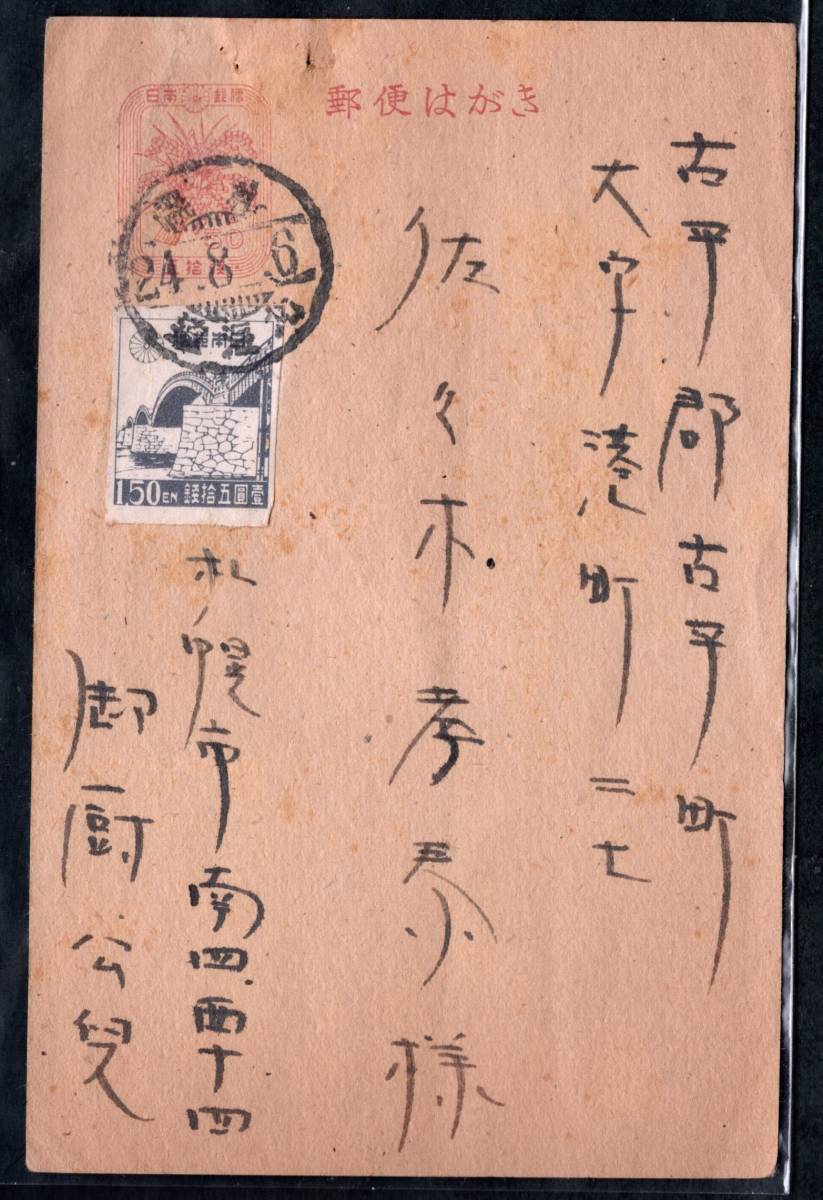 郵便はがき
日本郵便
五拾銭
24.8.6
1.50EN 壹圓五拾錢
古平郡古平町
大字港町二七
佐々木孝泰様
札幌市南四西十四
御厨公叟